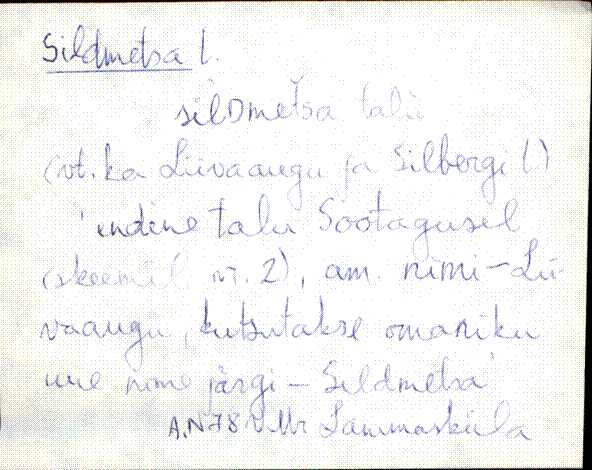 Sildmetsa t.
sìlDmetsa talu
(vt. ka Liivaaugu ja Silbergi t.)
'endine talu Sootagusel
(skeemil nr. 2), am. nimi – Lii-
vaaugu, kutsutakse omaniku
uue nime järgi – Sildmetsa'
A.N 78 V.Mr Lammasküla